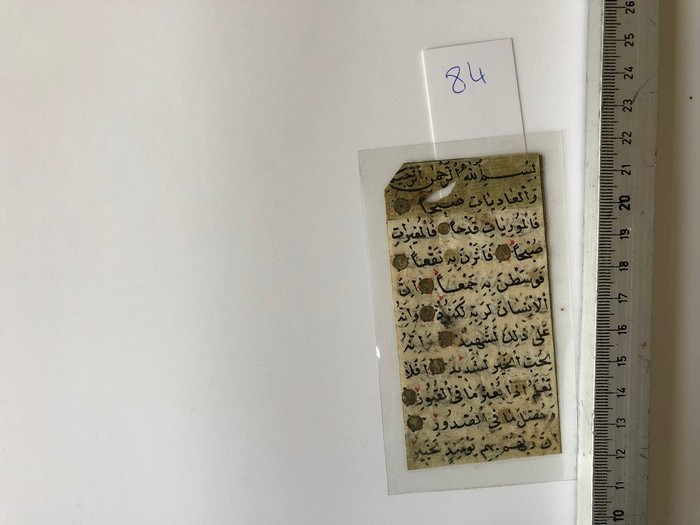 84
بِسْمِ اللهِ الرَّحْمٰنِ الرَّحِيمِ
وَالْعَادِيَاتِ ضَبْحًا
فَالْمُورِيَاتِ قَدْحًا فَالْمُغِيرَاتِ
صُبْحًا فَأَثَرْنَ بِهِ نَقْعًا
فَوَسَطْنَ بِهِ جَمْعًا اِنَّ
الْاِنْسَانَ لِرَبِّهِ لَكَنُودٌ وَاِنَّهُ
عَلٰى ذٰلِكَ لَشَهِيدٌ وَاِنَّهُ
لِحُبِّ الْخَيْرِ لَشَدِيدٌ اَفَلَا
يَعْلَمُ اِذَا بُعْثِرَ مَا فِي الْقُبُورِ
وَحُصِّلَ مَا فِي الصُّدُورِ
اِنَّ رَبَّهُمْ بِهِمْ يَوْمَئِذٍ لَخَبِيرٌ
26
25
24
23
22
21
20
19
18
17
16
15
14
13
12
11
10